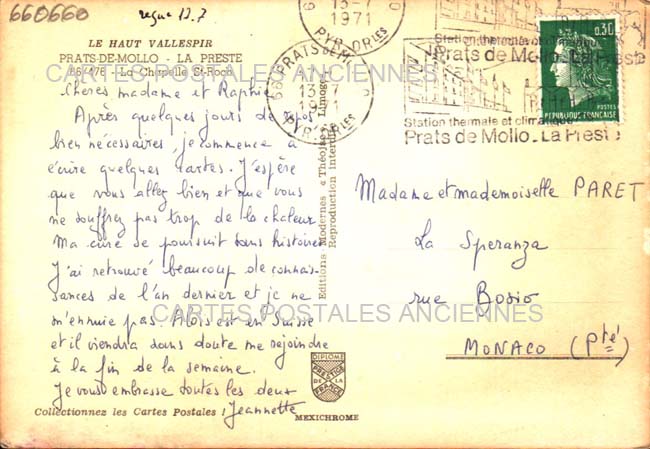 660660
reçue 17.7
LE HAUT VALLESPIR
PRATS-DE-MOLLO - LA PRESTE
66/476 - La Chapelle St-Roch
CARTES POSTALES ANCIENNES
Chères madame et Raphie
Après quelques jours de repos
bien nécessaires, je commence à
écrire quelques cartes. J'espère
que vous allez bien et que vous
ne souffrez pas trop de la chaleur
Ma cure se poursuit sans histoires
J'ai retrouvé beaucoup de connais-
sances de l'an dernier et je ne
m'ennuie pas. Alors est en Suisse
et il viendra sans doute me rejoindre
à la fin de la semaine.
Je vous embrasse toutes les deux
Jeannette
Collectionnez les Cartes Postales !
Editions Modernes « Théojac » Limoges
Reproduction Interdite
DIPLOME
PRESTIGE
DE LA
FRANCE
MEXICHROME
13-7
1971
PYR. OR LES
66 PRATS DE M.
13-7
1971
PYR. OR LES
Station thermale et climatique
Prats de Mollo_La Preste
Station thermale et climatique
Prats de Mollo_La Preste
0,30
POSTES
REPUBLIQUE FRANÇAISE
Madame et mademoiselle PARET
La Speranza
rue Bosio
MONACO (Pté)
CARTES POSTALES ANCIENNES